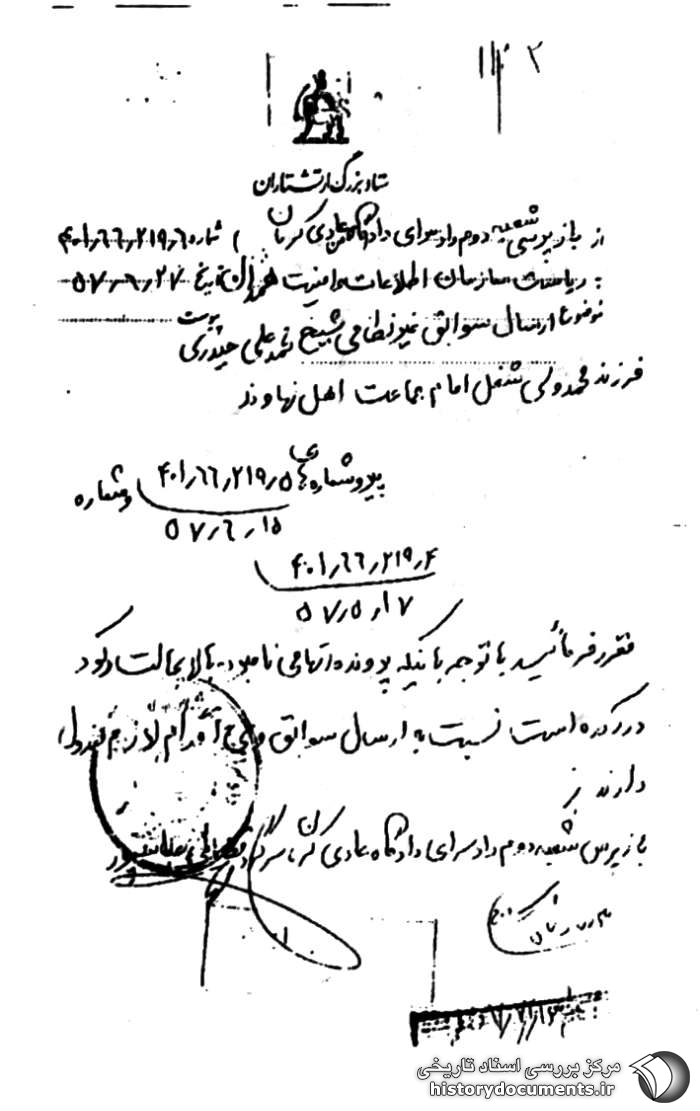 ۱۱۰۲
ستاد بزرگ ارتشتاران
از بازپرسی شعبه دوم دادسرای دادگاه عادی کرمان شماره ۴۰۱٫۶۶٫۲۱۹٫۶
به ریاست سازمان اطلاعات و امنیت تاریخ ۵۷٫۶٫۲۷
موضوع ارسال سوابق غیر نظامی شیخ محمد علی حیدری پیوست
فرزند محمدولی شغل امام جماعت اهل نهاوند
پیرو شماره های ۴۰۱٫۶۶٫۲۱۹٫۵ و شماره
۵۷٫۶٫۱۵
۴۰۱٫۶۶٫۲۱۹٫۴
۵۷٫۵٫۱۷
مقرر فرمائید با توجه باینکه پرونده اتهامی نامبرده بالا بحالت رکود
در آمده است نسبت به ارسال سوابق اقدام لازم مبذول
دارند
بازپرس شعبه دوم دادسرای دادگاه عادی کرمان سرگرد
مرکز بررسی اسناد تاریخی
historydocuments.ir